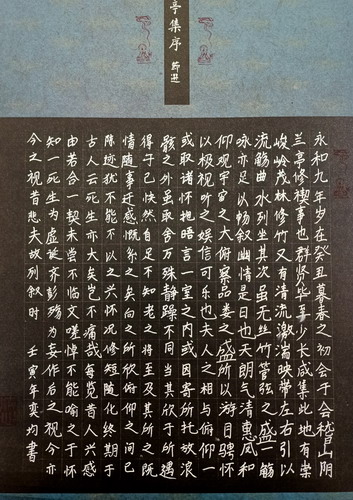 亭集序 节选
永和九年岁在癸丑暮春之初会于会稽山阴
兰亭修禊事也群贤毕至少长咸集此地有崇
峻岭茂林修竹又有清流激湍映带左右引以
流觞曲水列坐其次虽无丝竹管弦之盛一觞
咏亦足以畅叙幽情是日也天朗气清惠风和
仰观宇宙之大俯察品类之盛所以游目骋怀
以极视听之娱信可乐也夫人之相与俯仰一
或取诸怀抱晤言一室之内或因寄所托放浪
骸之外虽取舍万殊静躁不同当其欣于所遇
得于己快然自足不知老之将至及其所之既
情随事迁感慨系之矣向之所欣俯仰之间已
陈迹犹不能不以之兴怀况修短随化终期于
古人云死生亦大矣岂不痛哉每览昔人兴感
由若合一契未尝不临文嗟悼不能喻之于怀
知一死生为虚诞齐彭殇为妄作后之视今亦
今之视昔悲夫故列叙时 壬寅年奕均书